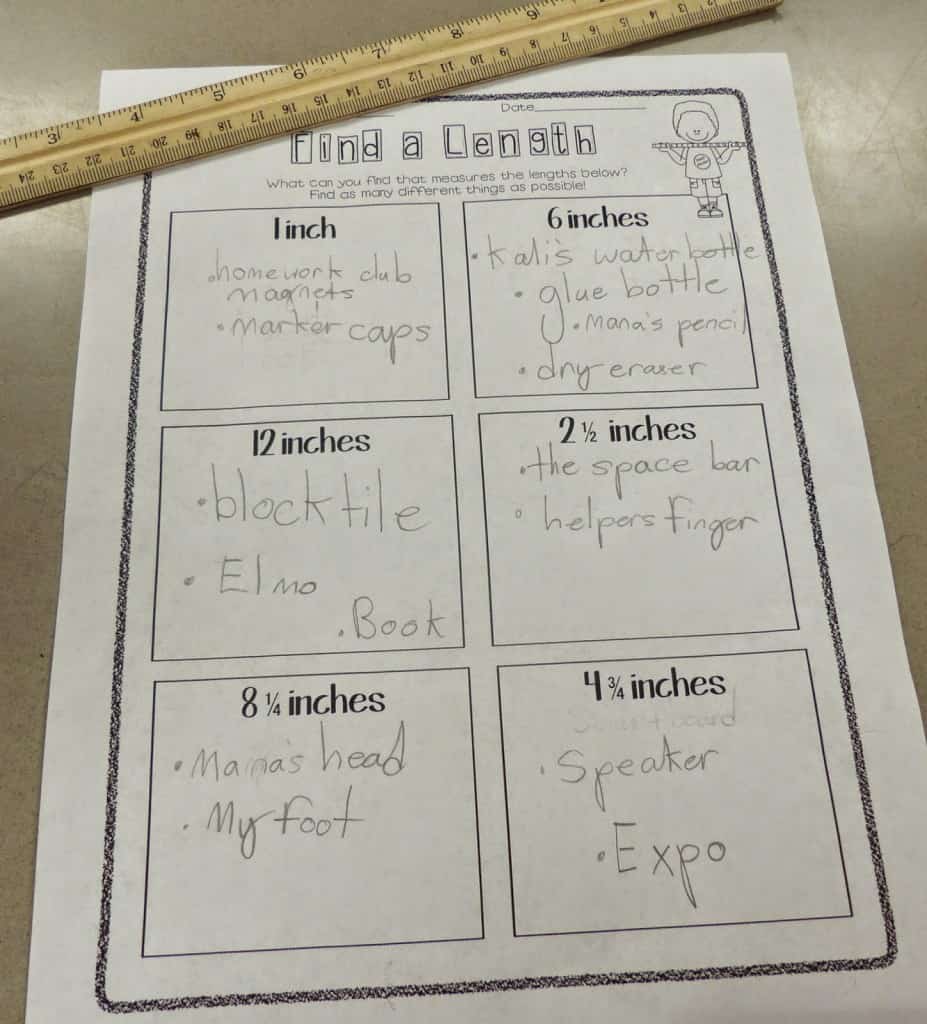 3 4 5 6 7 8 9
24 23 22 21 20 19 18 17 16 15 14 13 12 11 10 9 8 7 6 5 4 3
Date
Find a Length
What can you find that measures the lengths below?
Find as many different things as possible!
1 inch
•homework club
magnets
•marker caps
6 inches
•Kali's water bottle
•glue bottle
•Mana's pencil
•dry eraser
12 inches
•block tile
•Elmo
•Book
2 ½ inches
•the space bar
•helpers finger
8 ¼ inches
•Mana's head
•My foot
4 ¾ inches
•Speaker
•Expo